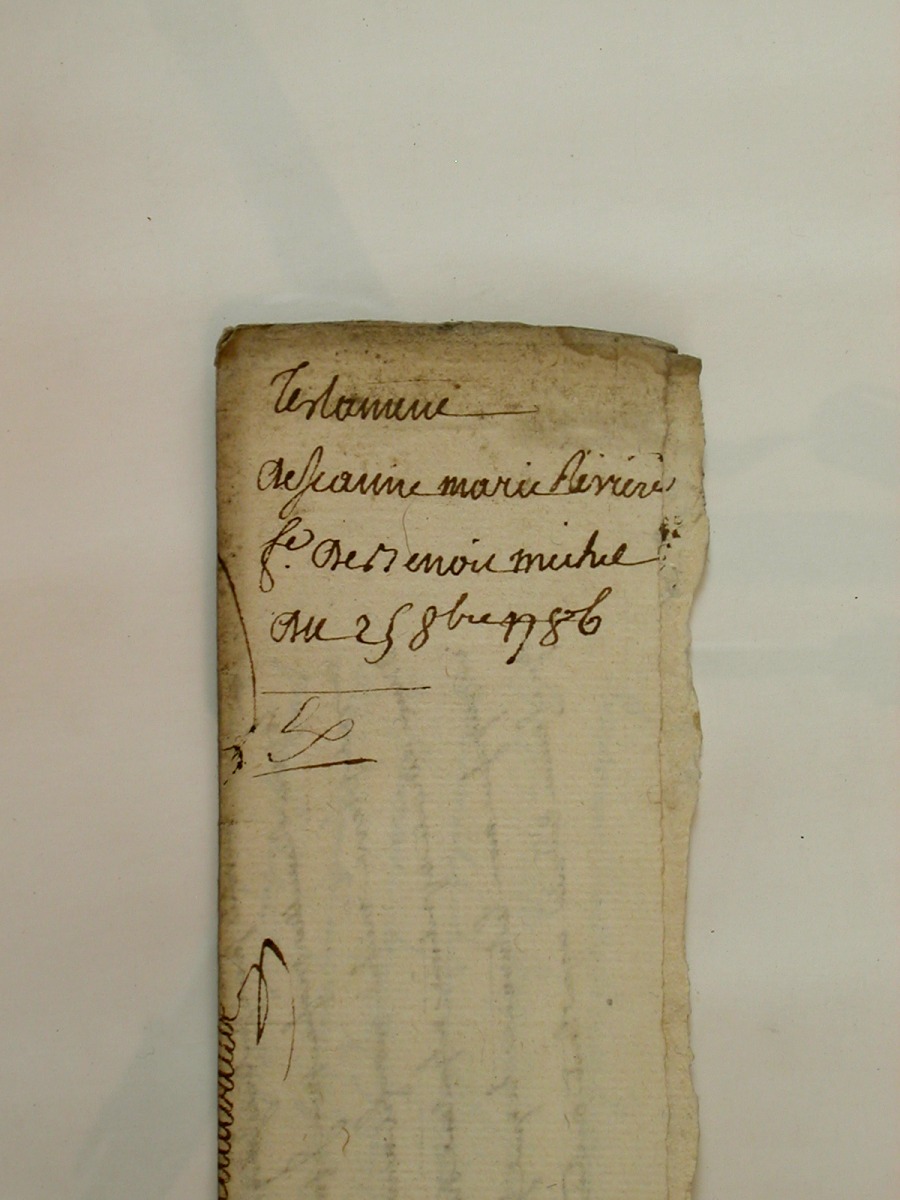 Testament
De Jeanne marie Riviere
fe. De Benoit michel
Du 25 8bre 1786